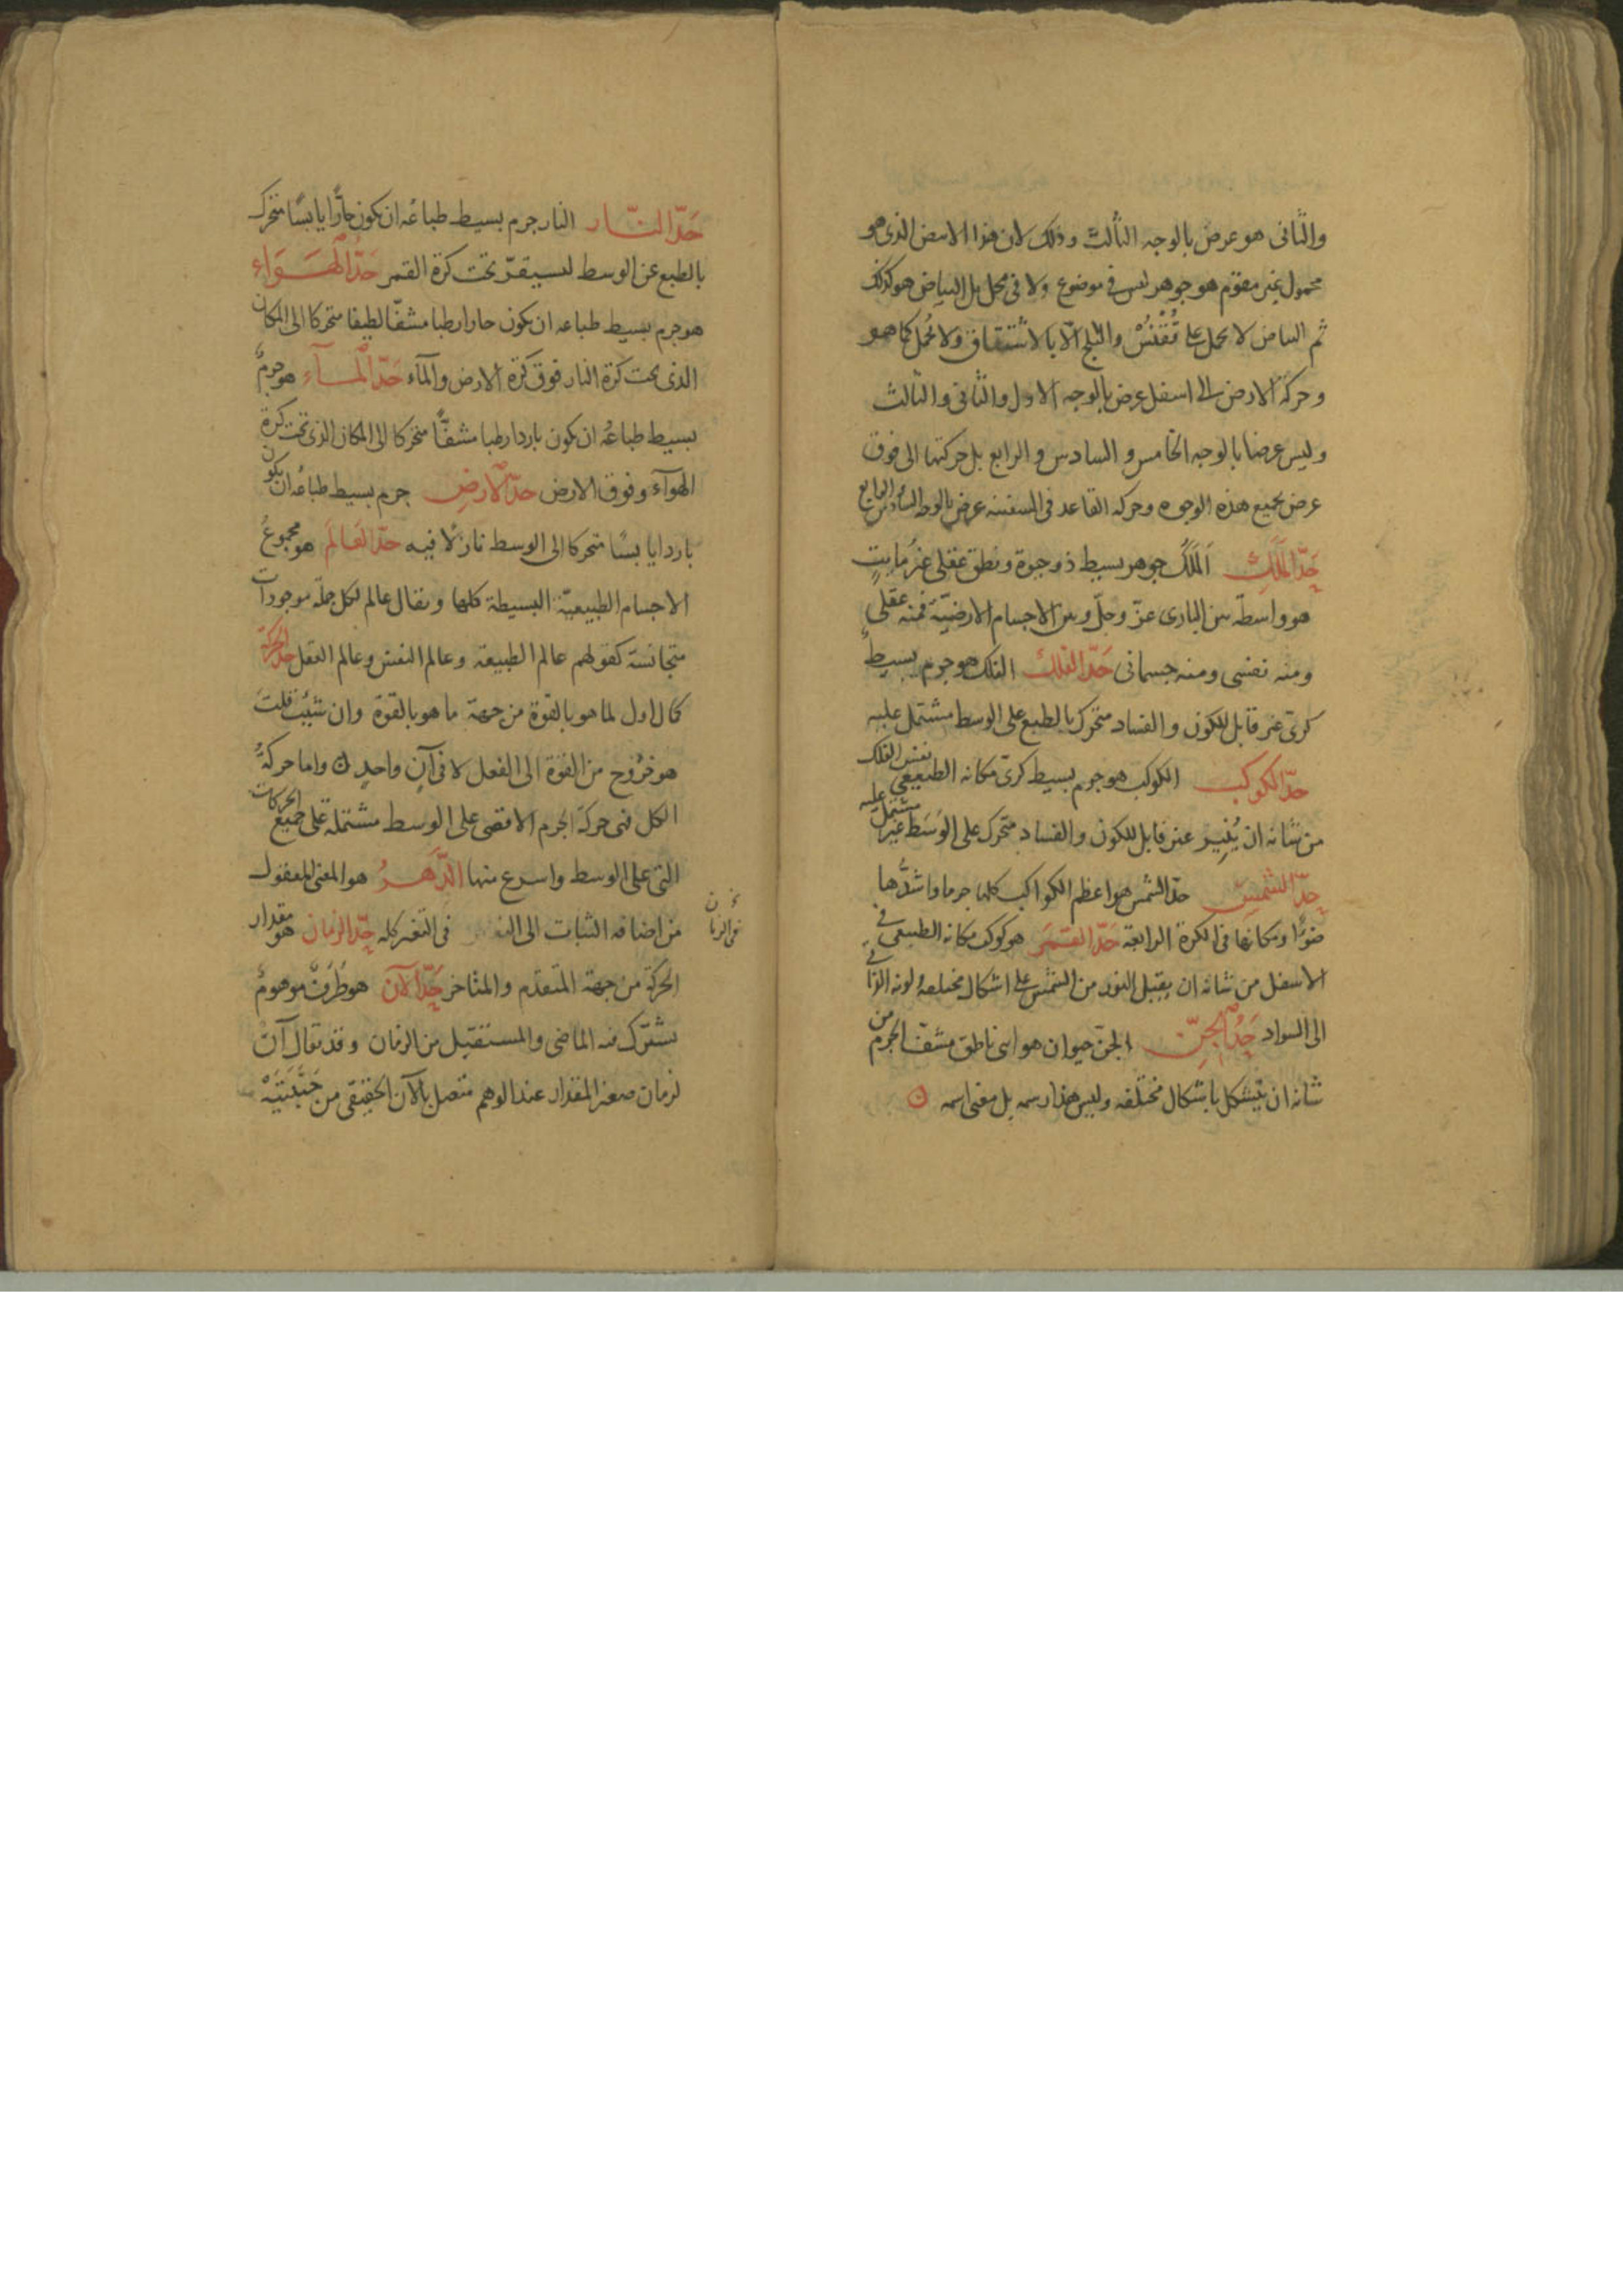 والثانى هو عرض بالوجه الثالث وذلك لان هذا الابيض الذى هو
محمول غير مقوم هو جوهر ليس فى موضوع ولا فى محل بل البياض هو كذلك
ثم البياض لا يحمل على قُقْنُسْ والثلج الّا بالاشتقاق ولا يُحمل كما هو
وحركة الارض الى اسفل عرض بالوجه الاول والثانى والثالث
وليس عرضا بالوجه الخامس والسادس والرابع بل حركتها الى فوق
عرض بجميع هذه الوجوه وحركه القاعد فى السفينه عرض بالوجه السادس الرابع
حَدّ المَلَكِ اَلمَلَكُ جوهر بسيط ذو حيوة ونطق عقلى غيرُ مايتٍ
هو واسطة بين البارى عزّ وجلّ وبين الاجسام الارضيّة فمنه عقلى
ومنه نفسى ومنه جسمانى حَدّ الفلك الفلك هو جرم بسيط
كرىّ غير قابل للكون والفساد متحرك بالطبع على الوسط مشتمل عليه
حدّ الكوكب الكوكب هو جرم بسيط كرىّ مكانه الطبيعى نفس الفلك
من شانه ان يُنِير غير قابل للكون والفساد متحرك على الوَسَط غير مشتمل عليه
حدّ الشمس حدّ الشمس هو اعظم الكواكب كلها جرما واشدُّها
ضوءًا ومكانها فى الكرة الرابعة حَدّ القَمَر هو كوكب مكانه الطبيعى فى
الاسفل من شانه ان يقبل النور من الشمس على اشكال مختلفه ولونه الذاتى
الى السواد حَدُّ الجِنّ الجنّ حيوان هوائى ناطق مشفّ الجرم من
شانه ان يتشكل باشكال مختلفه وليس هذا رسمه بل معنى اسمه
حَدّ النّار النار جرم بسيط طباعُه ان يكون حارّا يابسًا متحرك
بالطبع عن الوسط ليستقرّ تحت كرة القمر حَدُّ الهَوَاءِ
هو جرم بسيط طباعه ان يكون حارا رطبا مشفّا لطيفا متحركا الى المكان
الذى تحت كرة النار فوق كرة الارض والمآء حَدّ المآء هو جرمٌ
بسيط طباعُه ان يكون باردا رطبا مشفًّا متحركا الى المكان الذى تحت كرة
الهوآء وفوق الارض حدّ الارضِ جرم بسيط طباعُه ان يكون
باردا يابسًا متحركا الى الوسط نازلًا فيه حدّ العَالَم هو مجموعُ
الاجسام الطبيعيّة البسيطة كلها ويقال عالم لكل جملة موجودات
متجانسة كقولهم عالم الطبيعة وعالم النفس وعالم العقل حدّ الحركة
كمال اول لما هو بالقوة من جهة ما هو بالقوة وان شئت قلت
هو خُروج من القوة الى الفعل لا فى آنٍ واحدٍ واما حركةُ
الكل فهى حركة الجرم الاقصى على الوسط مشتملة على جميع الحركات
التى على الوسط واسرع منها الدَّهرُ هو المعنى المعقول
من اضافه الثبات الى النفس فى التغير كله حدّ الزمان هو مقدار
فى الزمان
الحركة من جهة المتقدم والمتاخر حَدّ الآن هو طَرَفٌ موهومٌ
يشترك فيه الماضى والمستقبل من الزمان وقد يقال آن
لزمان صغير المقدار عند الوهم متصل بالآن الحقيقى من جَنبتَيْه